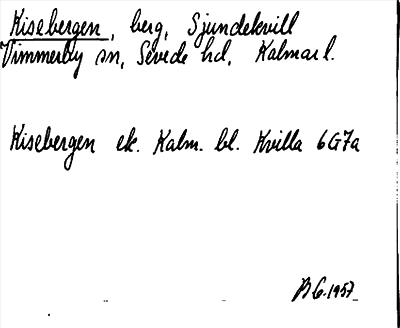 Kisebergen, berg, Sjundekvill
Vimmerby sn, Sevede hd, Kalmar l.
Kisebergen ek. Kalm. bl. Kvilla 6G7a
BG. 1957